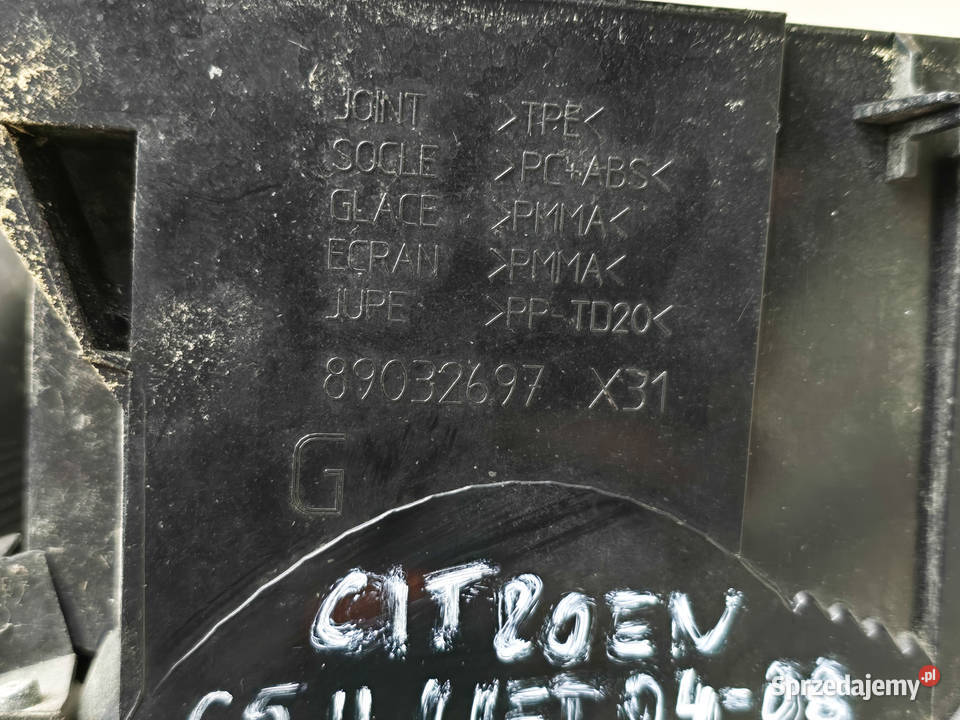 JOINT >TPE<
SOCLE >PC+ABS<
GLACE >PMMA<
ECRAN >PMMA<
JUPE >PP-TD20<
89032697 X31
G
CITROEN
C5 II LIFT 04-08
Sprzedajemy.pl